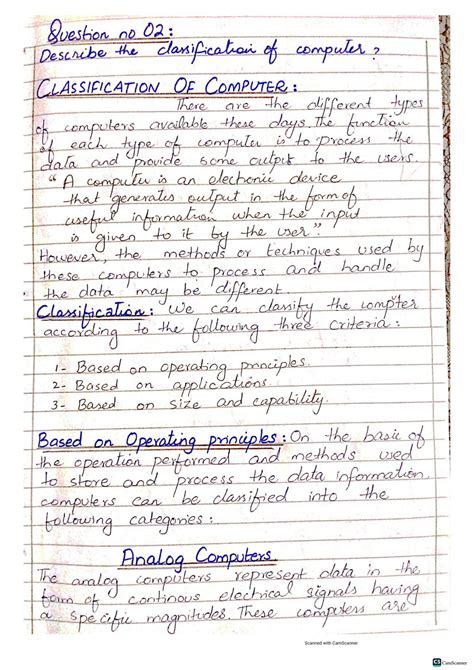 Question no 02:
Describe the classification of computer?
CLASSIFICATION OF COMPUTER:
There are the different types
of computers available these days. The function
of each type of computer is to process the
data and provide some output to the users.
"A computer is an electronic device
that generates output in the form of
useful information when the input
is given to it by the user."
However, the methods or techniques used by
these computers to process and handle
the data may be different.
Classification: We can classify the computer
according to the following three criteria:
1- Based on operating principles.
2- Based on applications.
3- Based on size and capability.
Based on Operating principles: On the basic of
the operation performed and methods used
to store and process the data information.
computers can be classified into the
following categories:
Analog Computers
The analog computers represent data in the
form of continous electrical signals having
a specific magnitudes. These computers are
Scanned with CamScanner
CS CamScanner